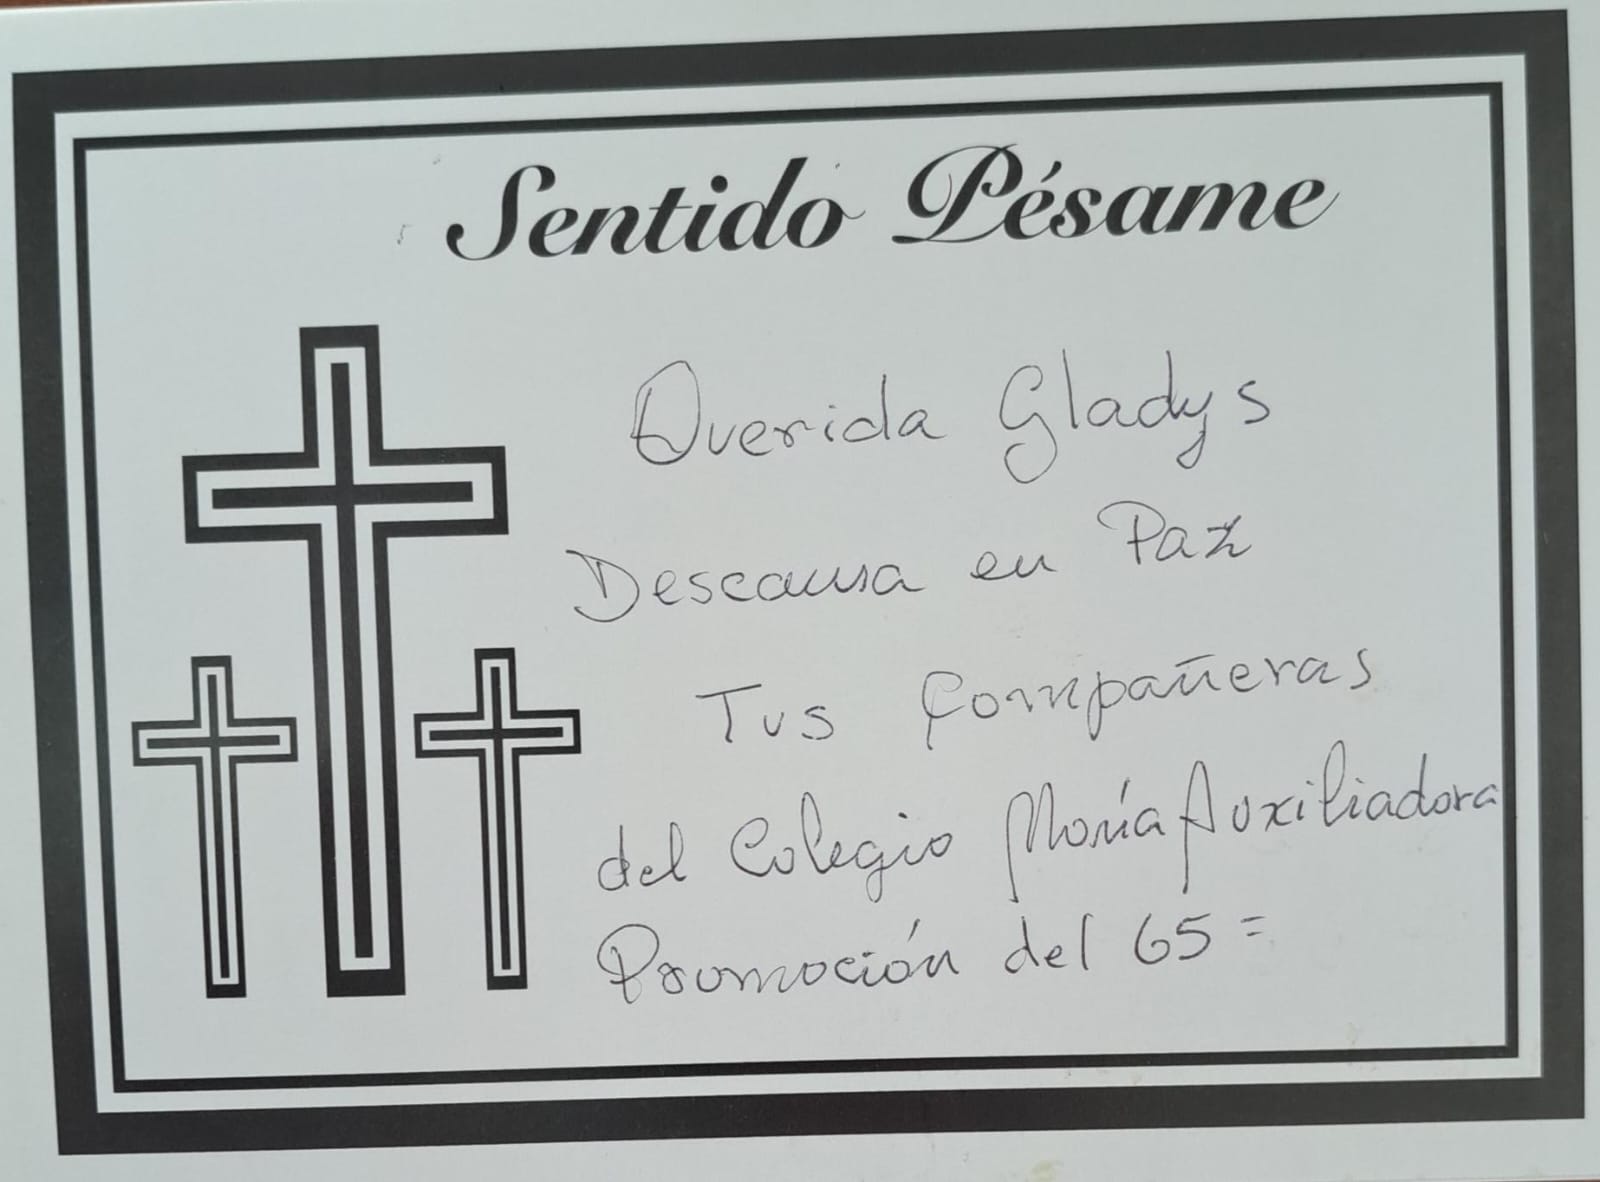 Sentido Pésame
Querida Gladys
Descansa en Paz
Tus Compañeras
del Colegio María Auxiliadora
Promoción del 65 =